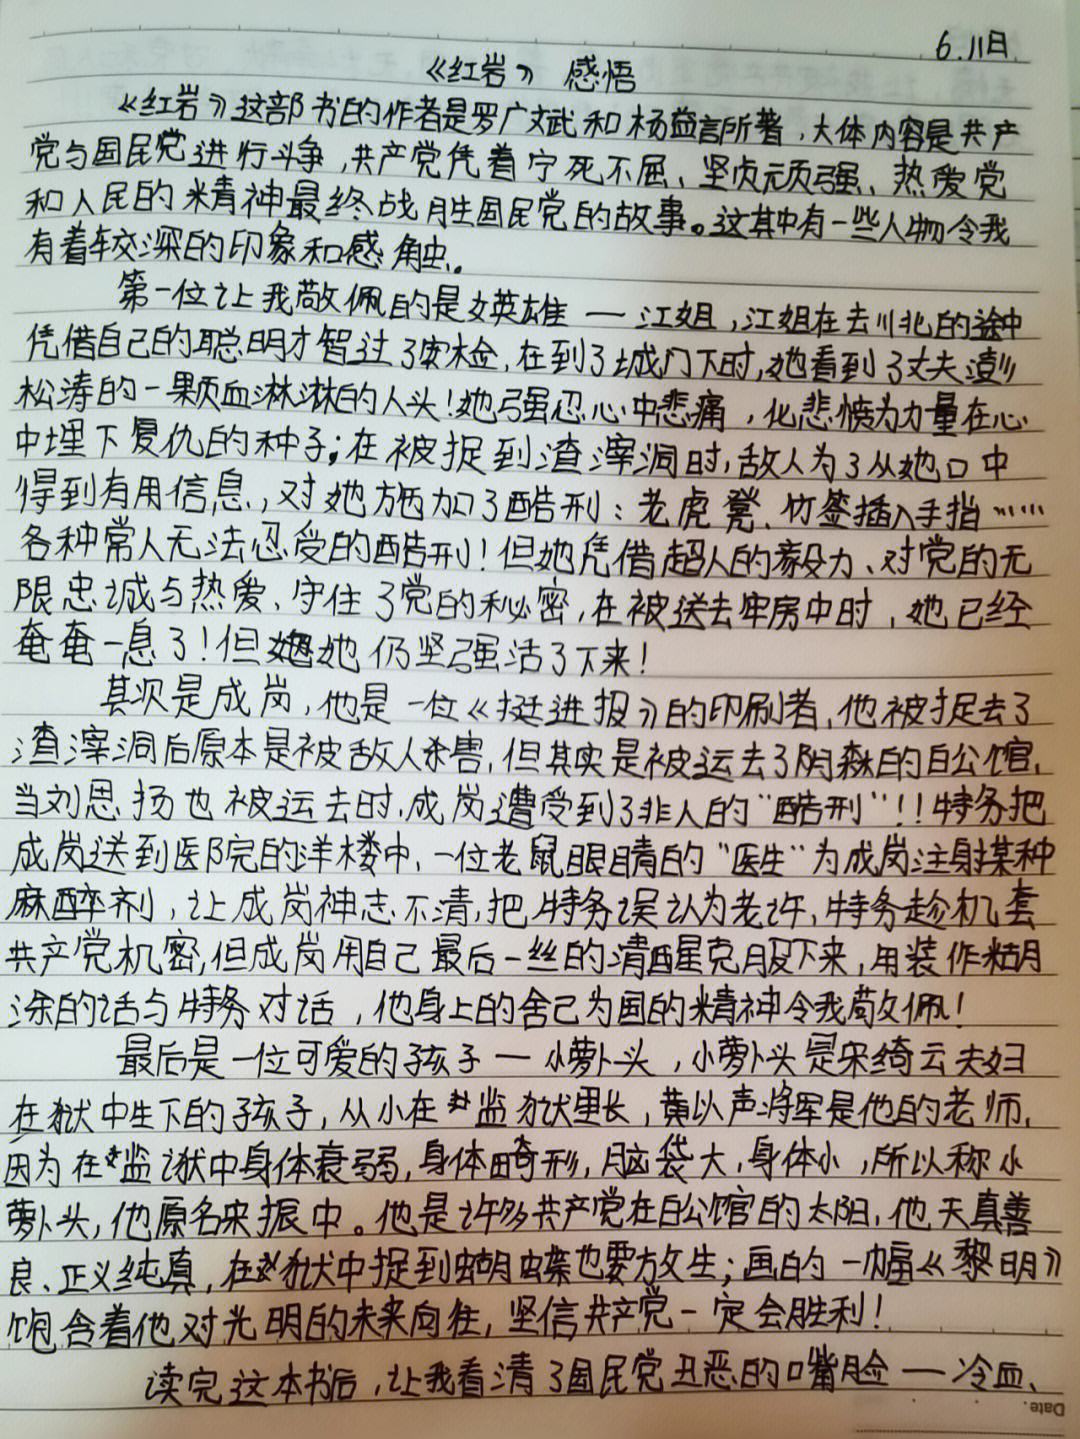 6.11日
《红岩》感悟
《红岩》这部书的作者是罗广斌和杨益言所著,大体内容是共产
党与国民党进行斗争,共产党凭着宁死不屈、坚贞顽强、热爱党
和人民的精神最终战胜国民党的故事。这其中有一些人物令我
有着较深的印象和感触。
第一位让我敬佩的是女英雄——江姐,江姐在去川北的途中
凭借自己的聪明才智过了安检,在到了城门下时,她看到了丈夫彭
松涛的一颗血淋淋的人头!她强忍心中悲痛,化悲愤为力量在心
中埋下复仇的种子;在被捉到渣滓洞时,敌人为了从她口中
得到有用信息,对她施加了酷刑:老虎凳、竹签插入手指……
各种常人无法忍受的酷刑!但她凭借超人的毅力、对党的无
限忠诚与热爱、守住了党的秘密,在被送去牢房中时,她已经
奄奄一息了!但她仍坚强活了下来!
其次是成岗,他是一位《挺进报》的印刷者,他被捉去了
渣滓洞后原本是被敌人杀害,但其实是被运去了阴森的白公馆,
当刘思扬也被运去时,成岗遭受到了非人的“酷刑”!!特务把
成岗送到医院的洋楼中,一位老鼠眼睛的“医生”为成岗注射某种
麻醉剂,让成岗神志不清,把特务误认为老许,特务趁机套
共产党机密,但成岗用自己最后一丝的清醒克服下来,用装作糊
涂的话与特务对话,他身上的舍己为国的精神令我敬佩!
最后是一位可爱的孩子——小萝卜头,小萝卜头是宋绮云夫妇
在狱中生下的孩子,从小在监狱里长,黄以声将军是他的老师,
因为在监狱中身体衰弱,身体畸形,脑袋大,身体小,所以称小
萝卜头,他原名宋振中。他是许多共产党在白公馆的太阳,他天真善
良、正义纯真,在狱中捉到蝴蝶也要放生;画的一幅《黎明》
饱含着他对光明的未来向往,坚信共产党一定会胜利!
读完这本书后,让我看清了国民党丑恶的口嘴脸——冷血、
Date.